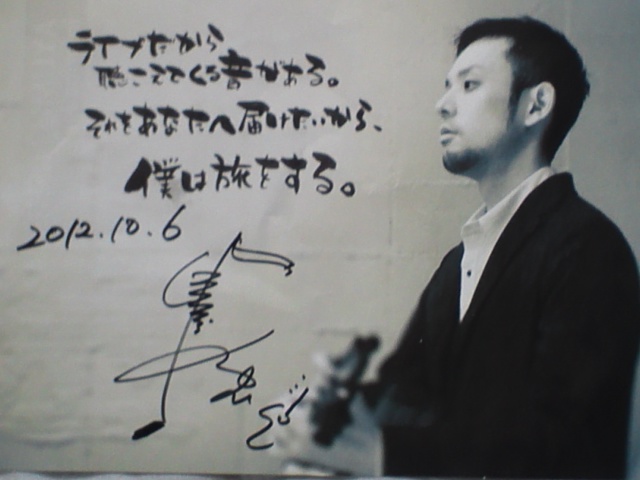 ライブだから
聴こえてくる音がある。
それをあなたへ届けたいから、
僕は旅をする。
2012.10.6